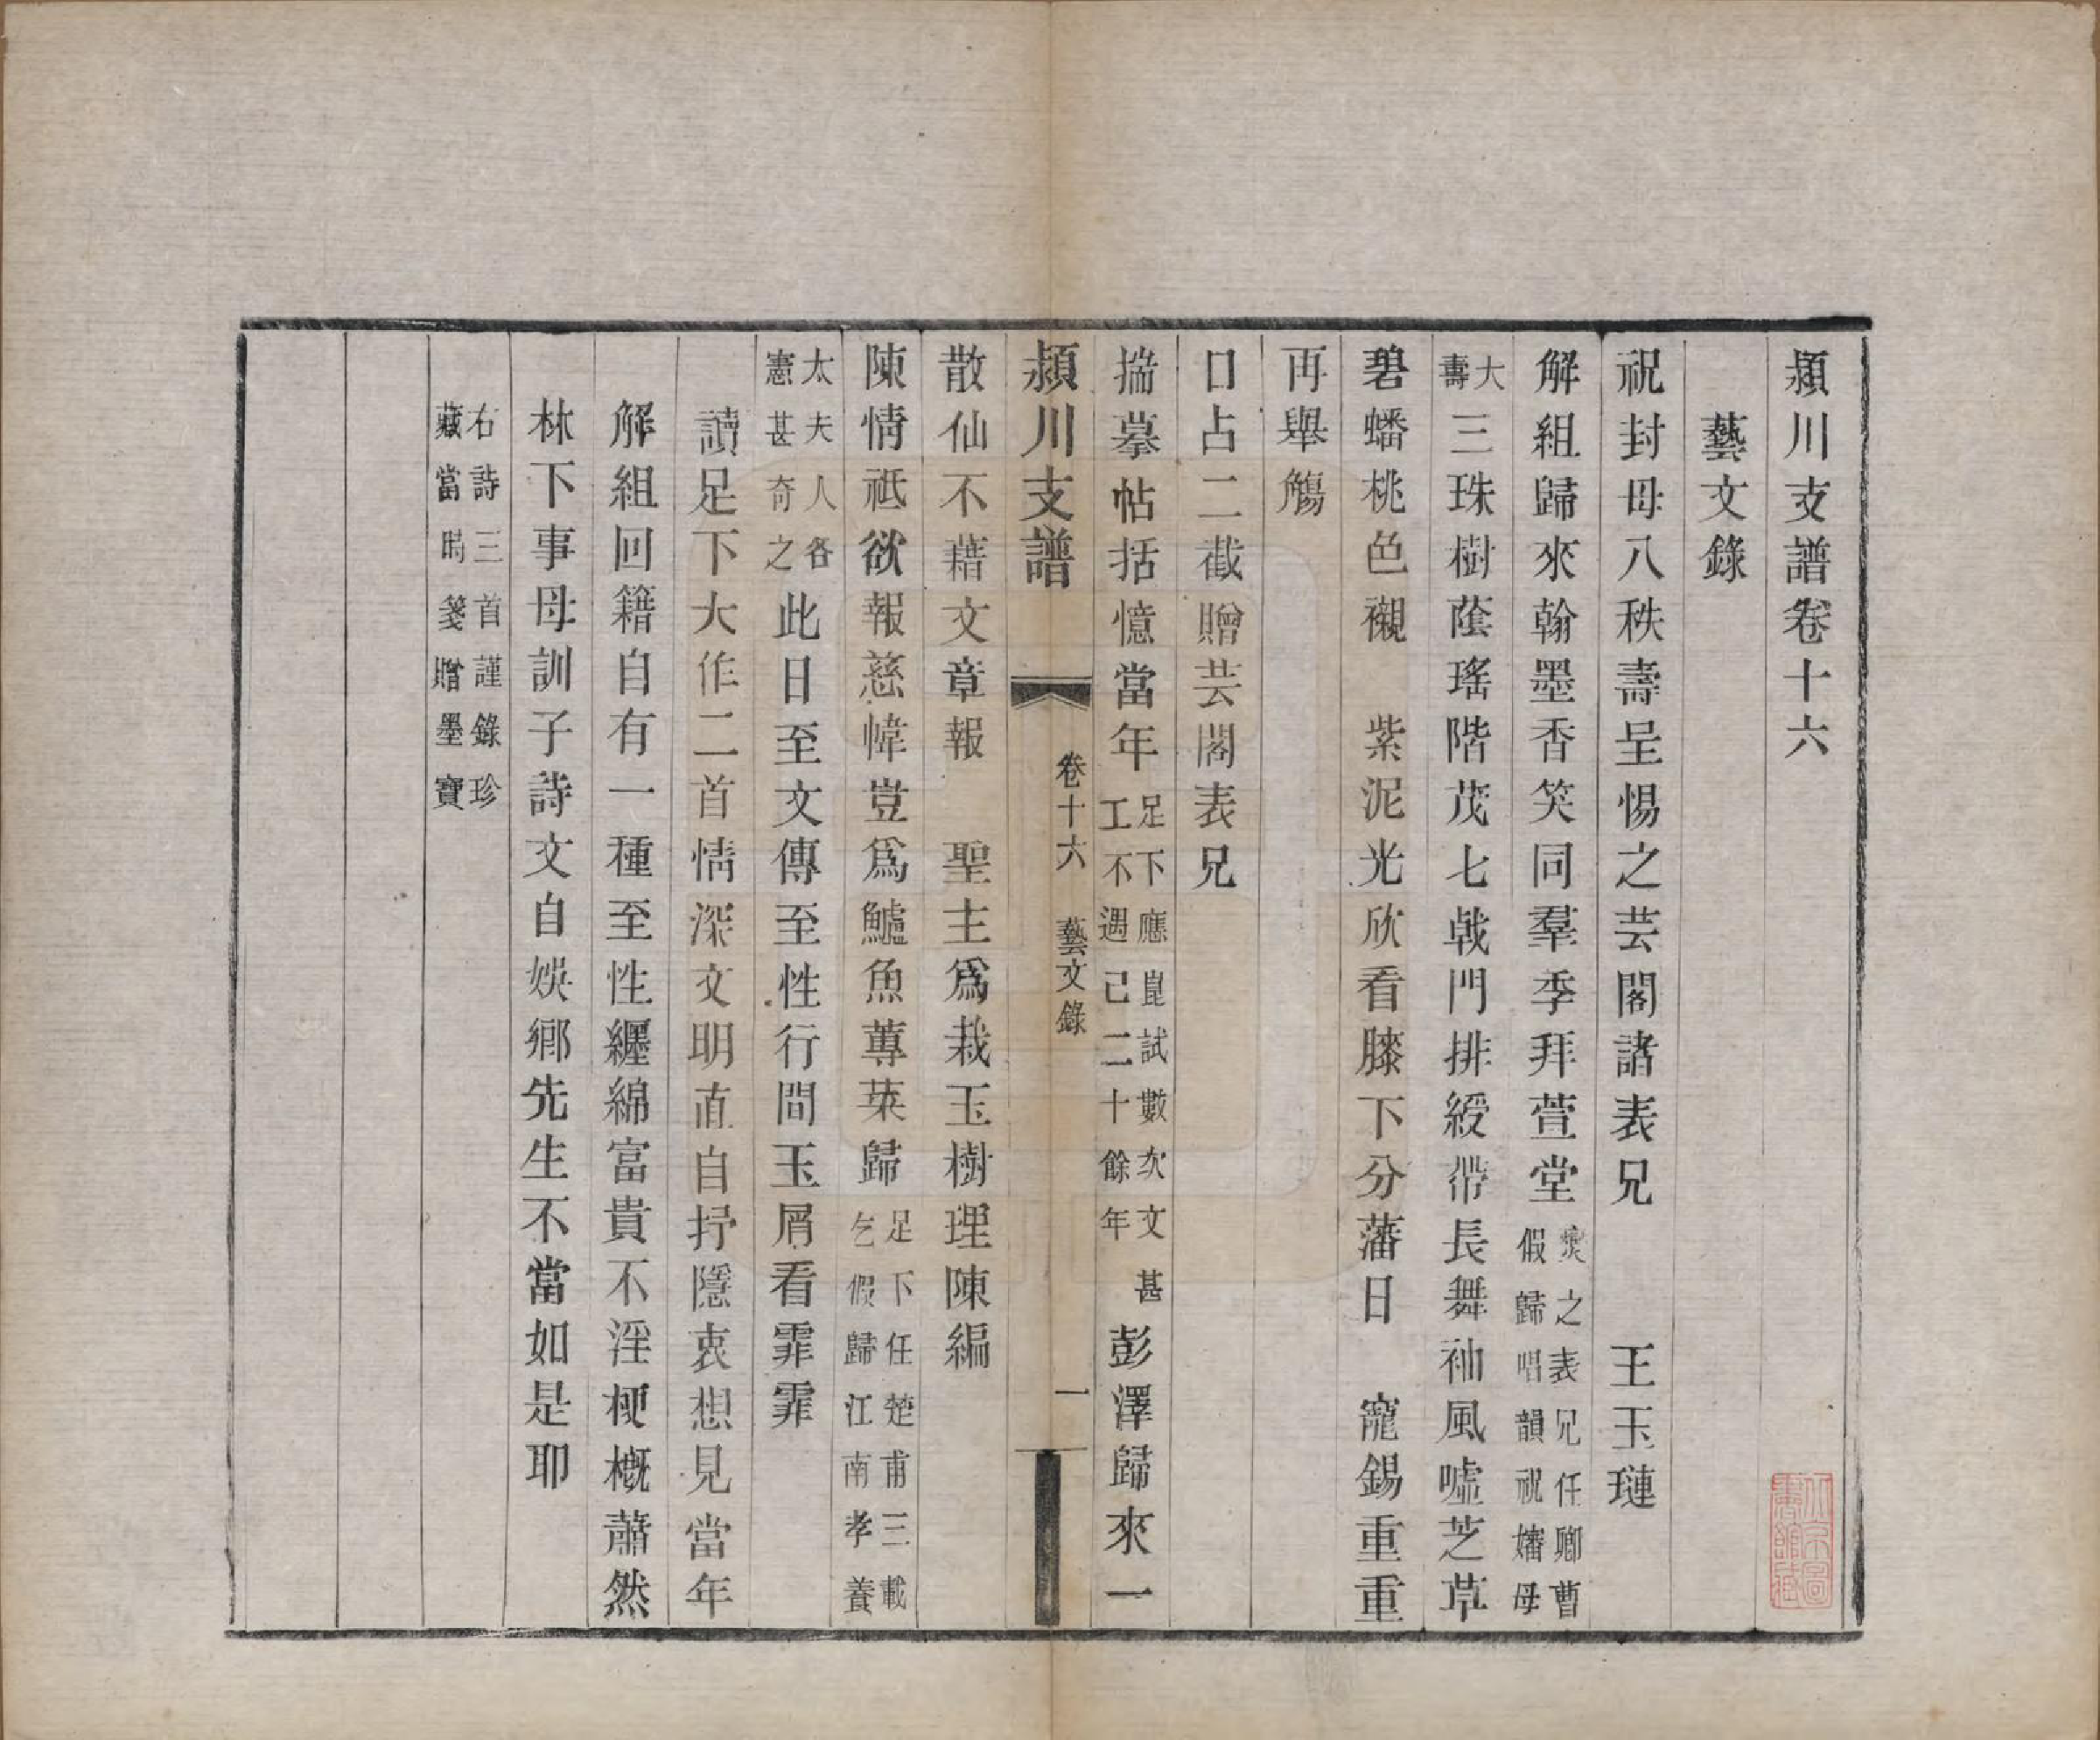 潁川支譜卷十六
藝文錄
祝封母八秩壽呈惕之芸閣諸表兄　王玉璉
解組歸來翰墨香笑同羣季拜萱堂燮之表兄任卿曹假歸唱韻祝嬸母
大壽三珠樹蔭瑤階茂七戟門排綬帶長舞袖風噓芝草
碧蟠桃色襯　紫泥光欣看膝下分藩日　寵錫重重
再舉觴
口占二截贈芸閣表兄
揣摹帖括憶當年足下應崑試數次文甚工不遇已二十餘年彭澤歸來一
潁川支譜　卷十六　藝文錄　一
散仙不藉文章報　聖主爲栽玉樹理陳編
陳情祗欲報慈幃豈爲鱸魚蓴菜歸足下任楚甫三載乞假歸江南孝養
太夫人各憲甚奇之此日至文傳至性行間玉屑看霏霏
讀足下大作二首情深文明直自抒隱衷想見當年
解組回籍自有一種至性纏綿富貴不淫梗概蕭然
林下事母訓子詩文自娛鄉先生不當如是耶
右詩三首謹錄珍藏當時箋贈墨寶